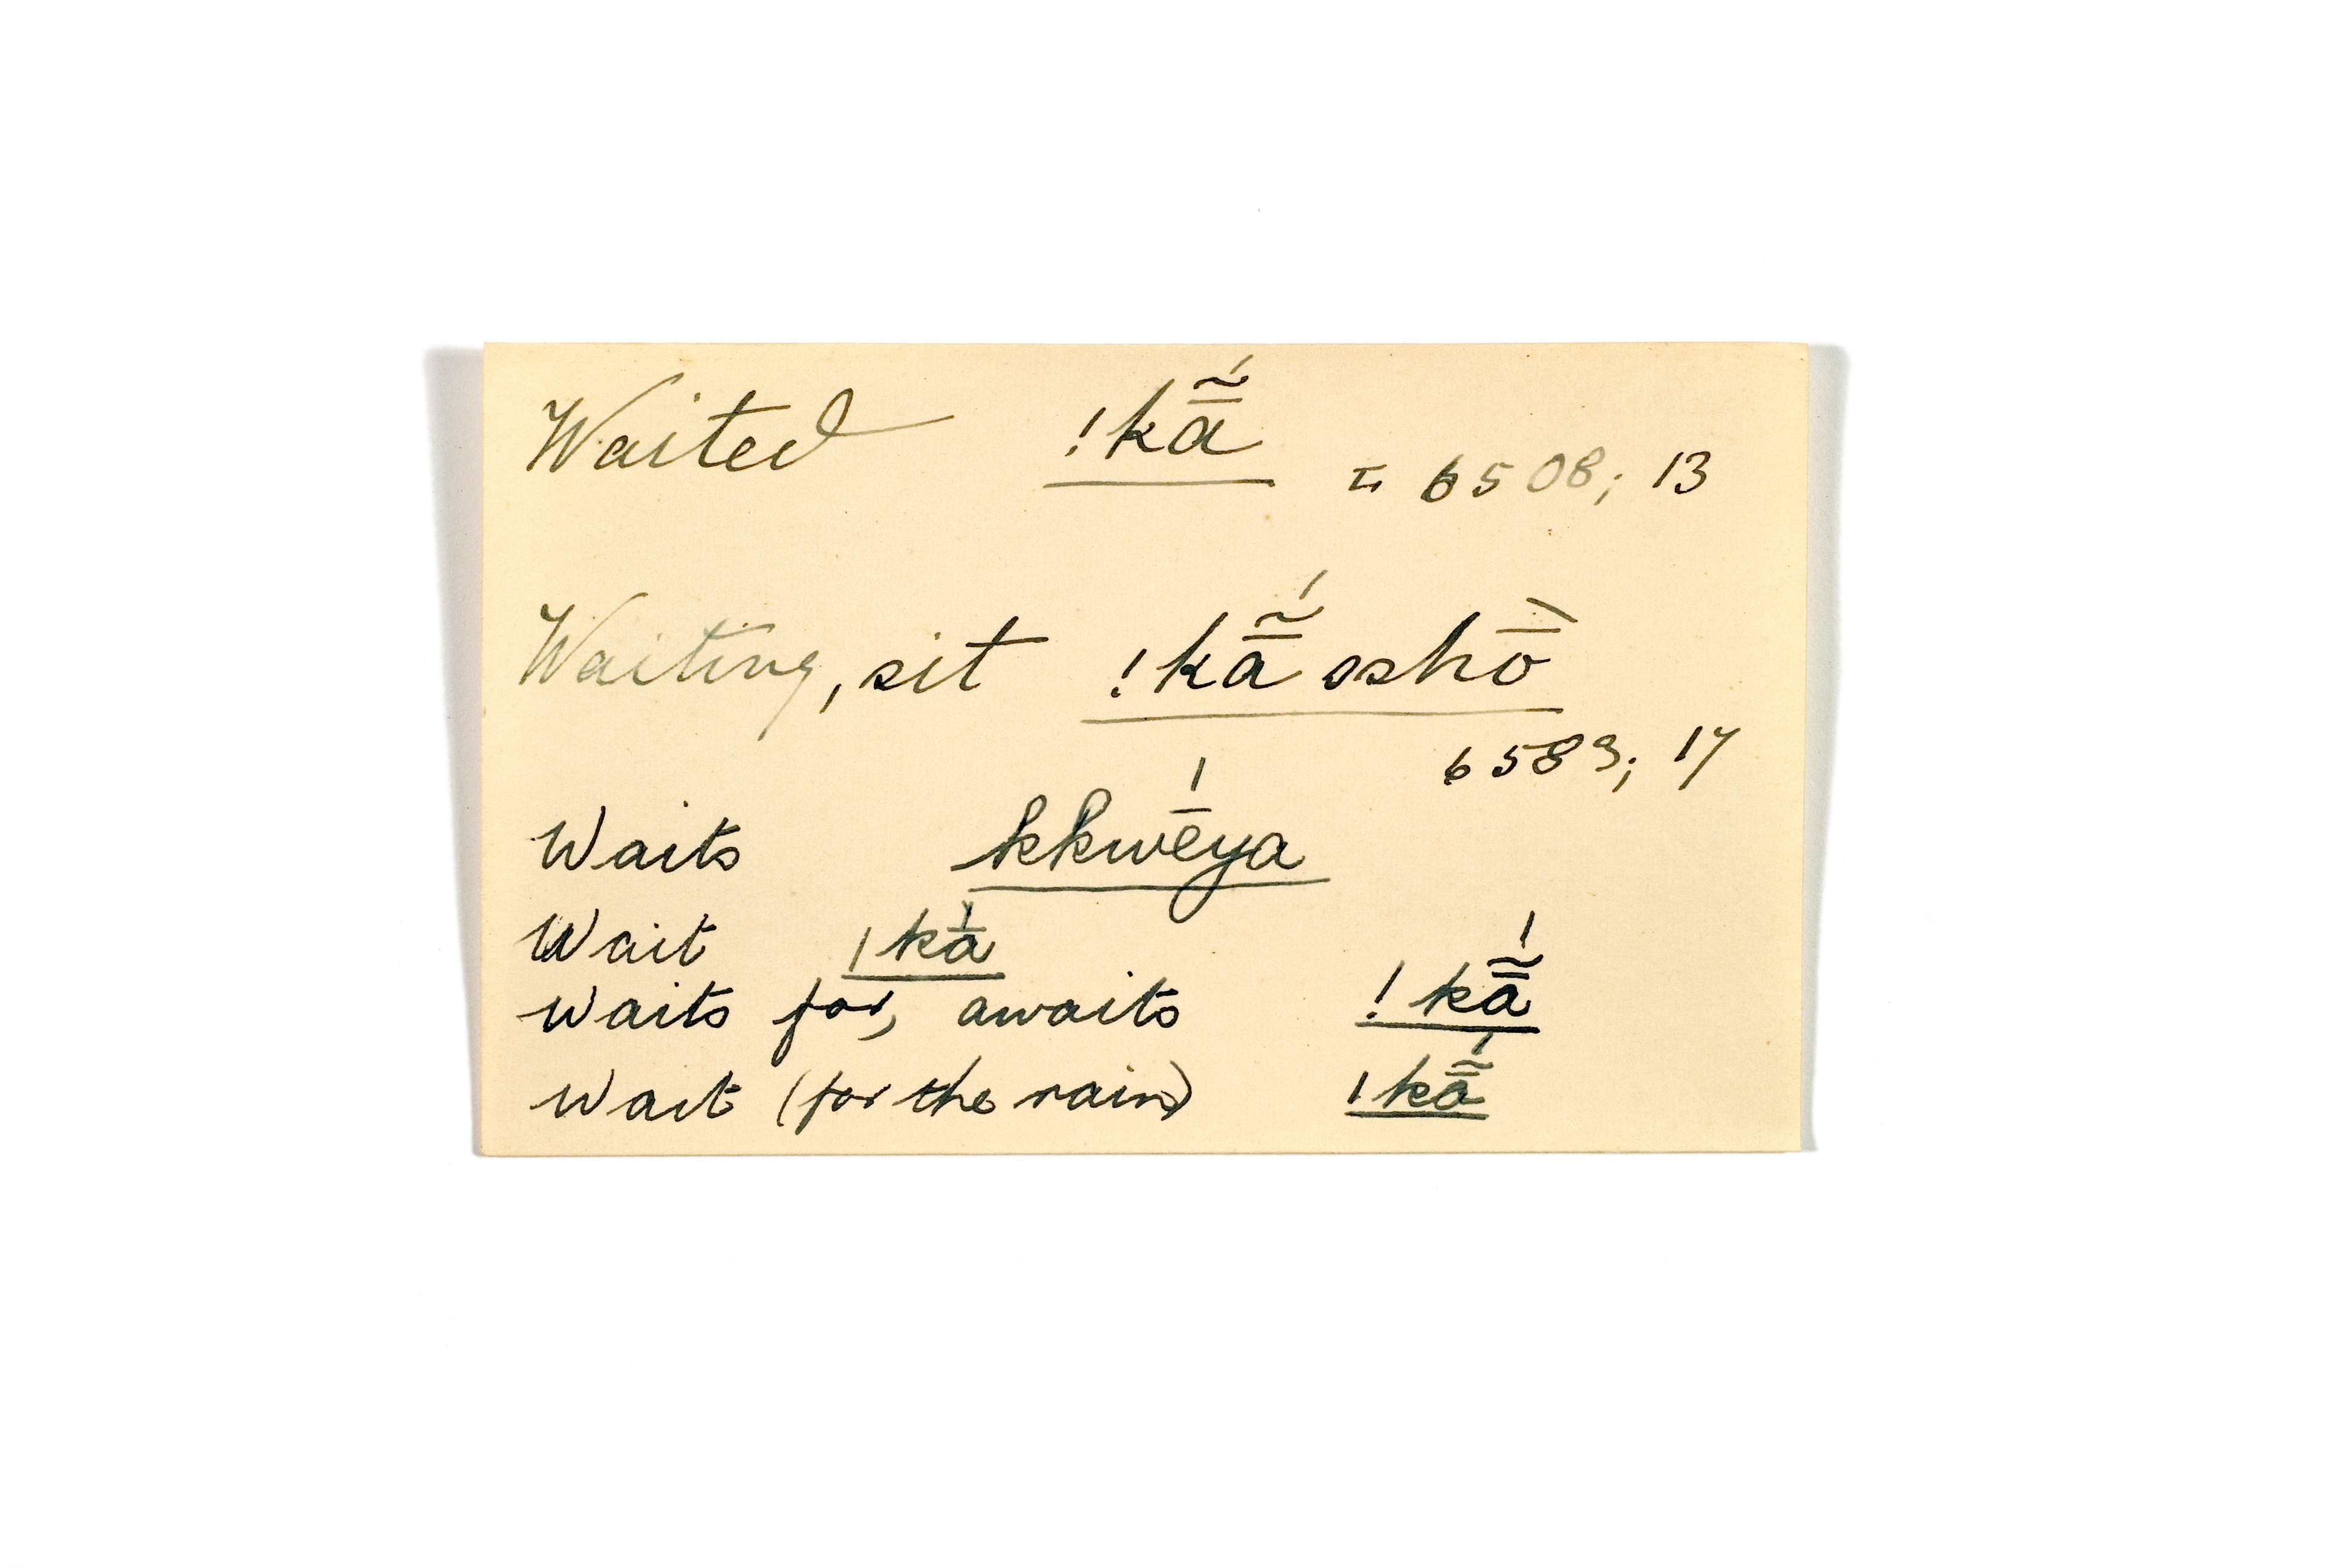 Waited !kā̃́ = 6508; 13
Waiting, sit !kā̃́ osho᷇̄
6589; 17
Waits kkwḗya
Wait |kā́
Waits for, awaits !kā̃́
Wait (for the rain) |kā̃́